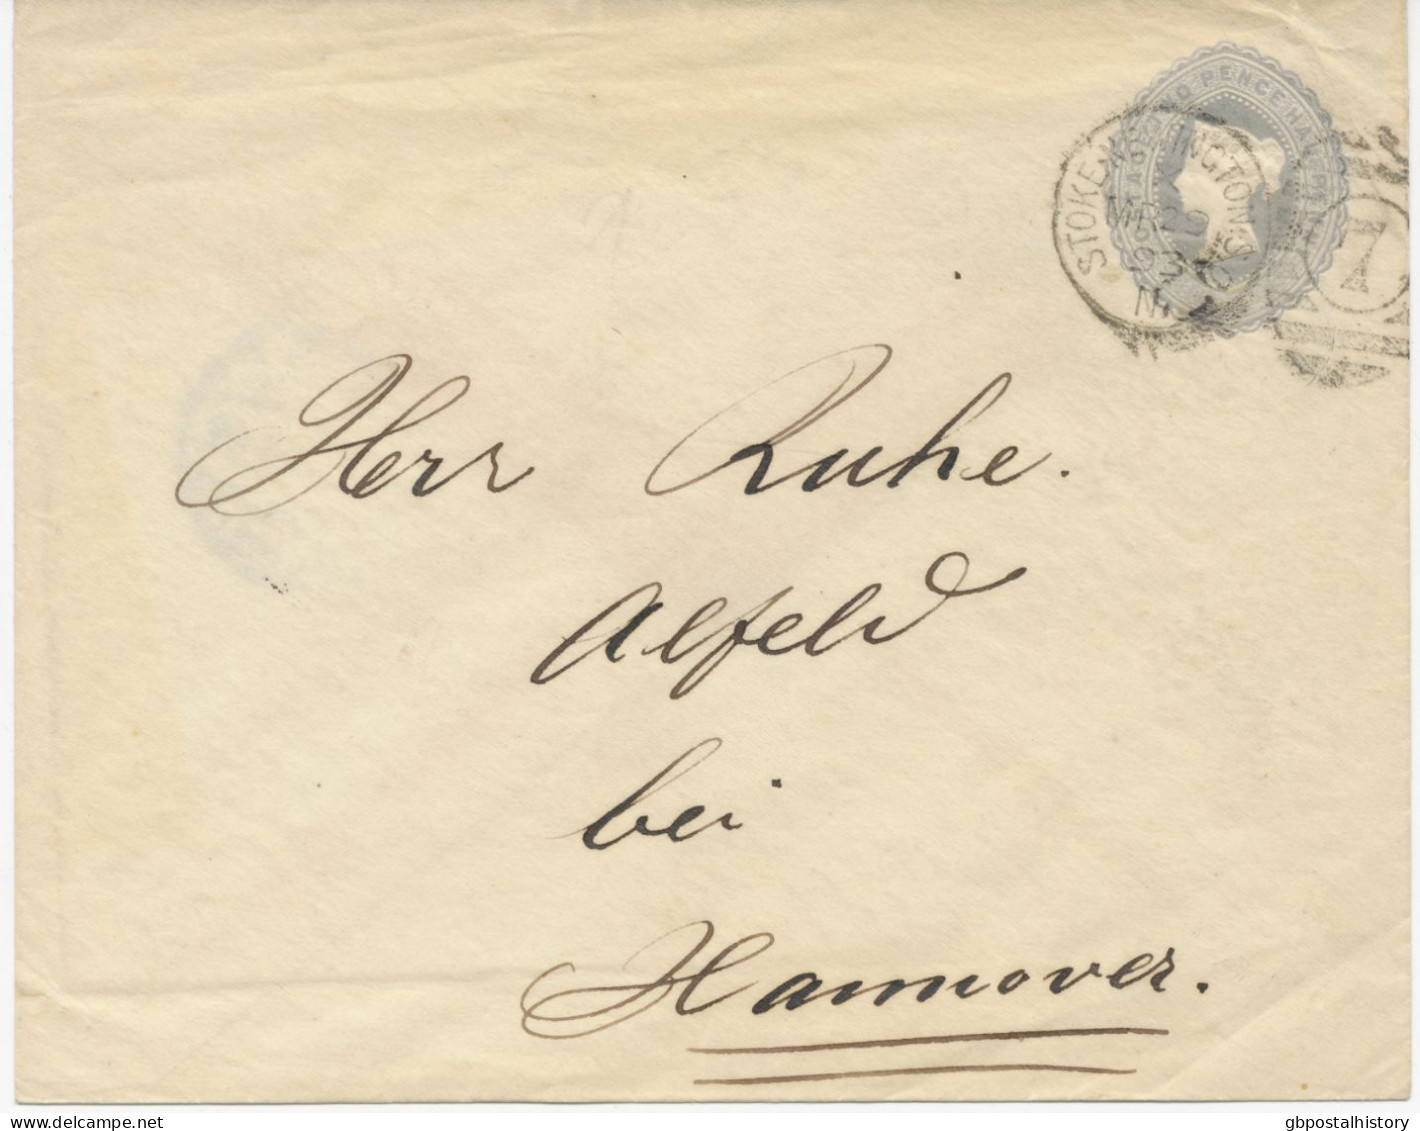 POSTAGE TWO PENCE HALFPENNY
STOKE NEWINGTON
MR 2
93
N.
7
Herr Ruhe.
Alfeld
bei
Hannover.
gbpostalhistory